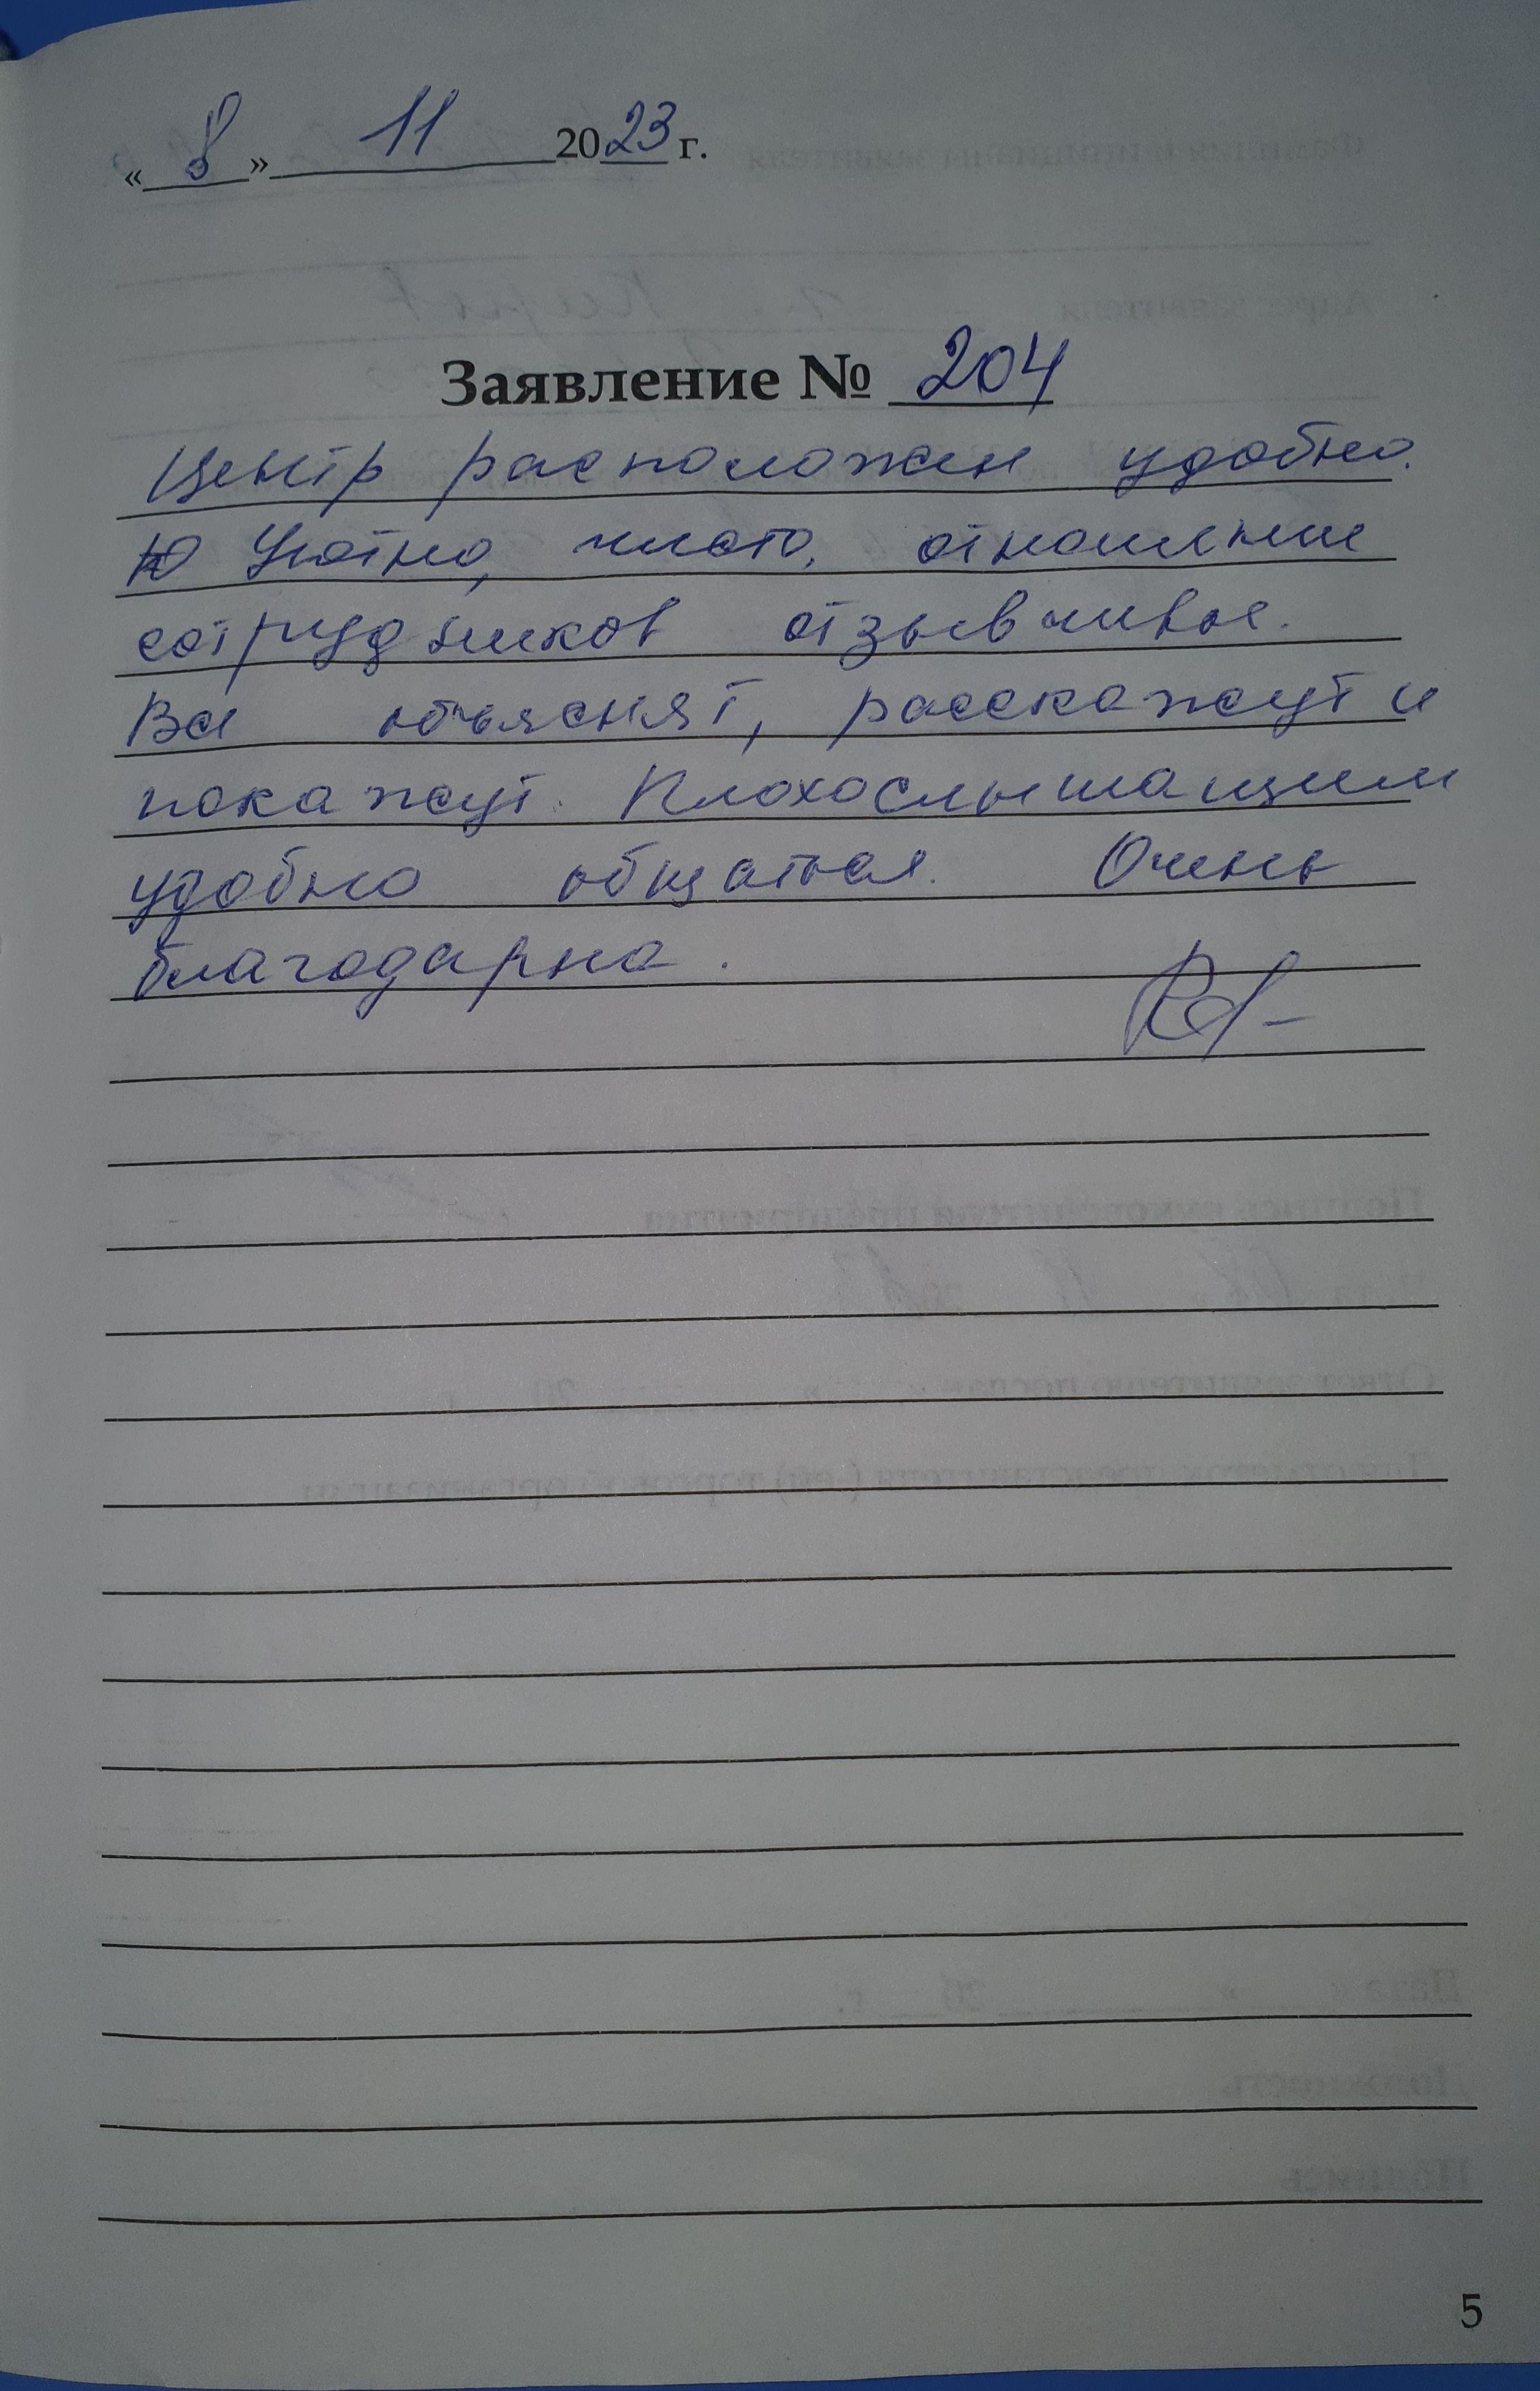 «8» 11 2023 г.
Заявление № 204
Центр расположен удобно.
Уютно, чисто, отношение
сотрудников отзывчивые.
Все объяснят, расскажут и
покажут. Плохослышащим
удобно общаться. Очень
благодарна.
5